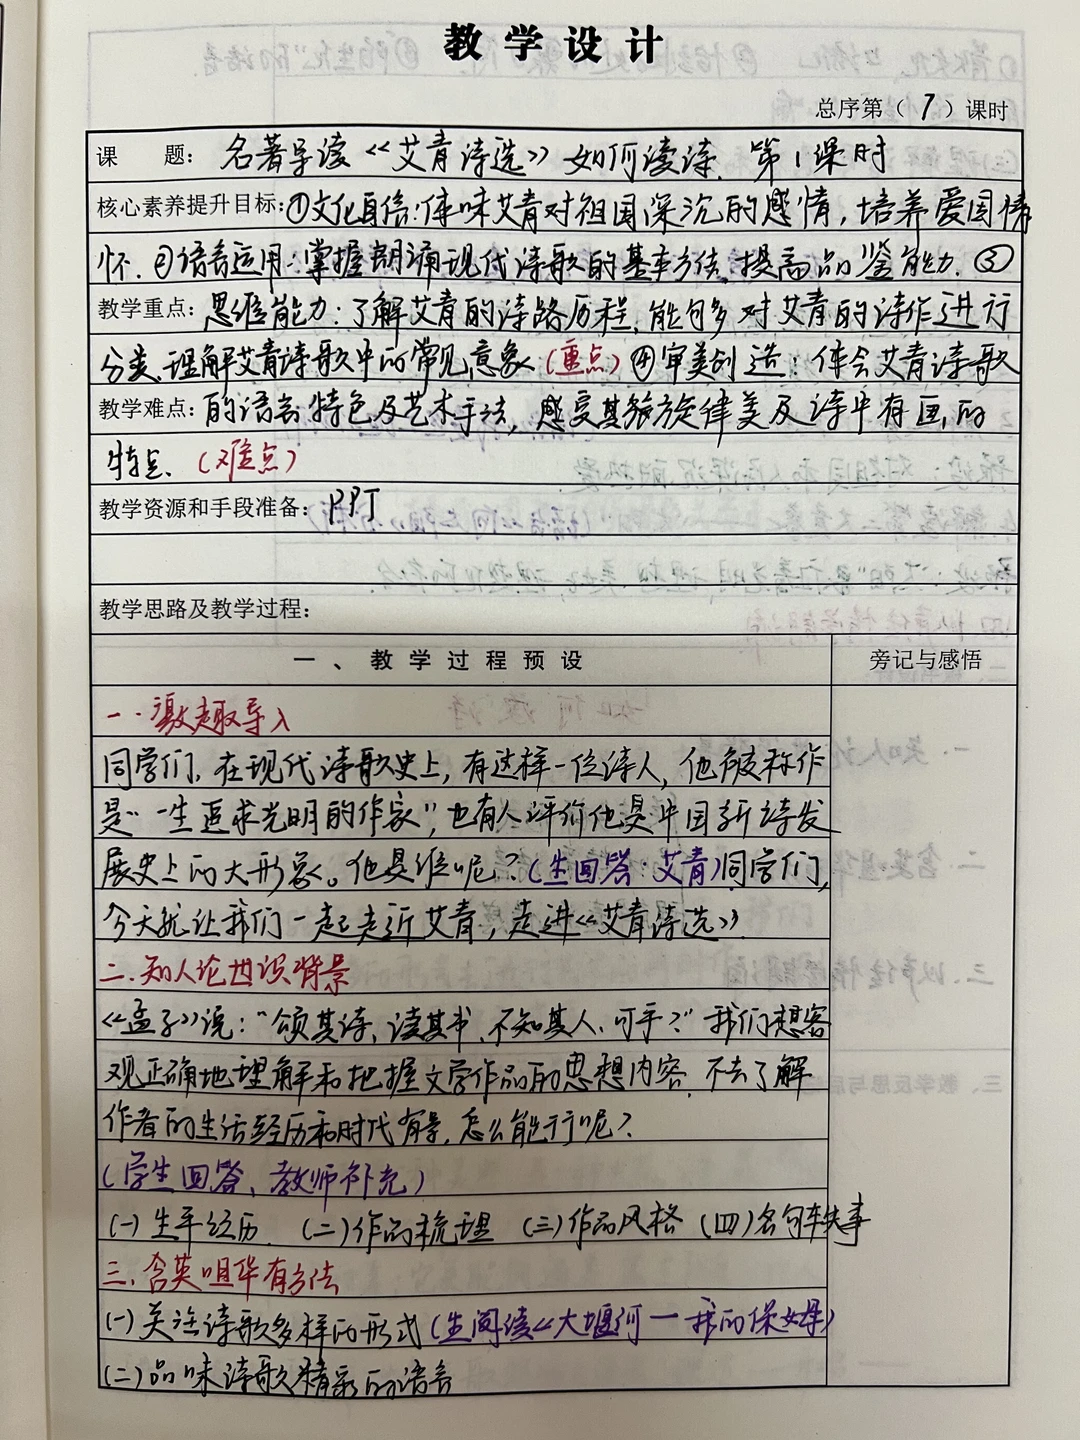 教学设计
总序第（7）课时
课　题：名著导读《艾青诗选》如何读诗 第1课时
核心素养提升目标：①文化自信：体味艾青对祖国深沉的感情，培养爱国情
怀.②语言运用：掌握朗诵现代诗歌的基本方法，提高品鉴能力.③
教学重点：思维能力：了解艾青的诗路历程，能够多对艾青的诗作进行
分类，理解艾青诗歌中的常见意象（重点）④审美创造：体会艾青诗歌
教学难点：的语言特色及艺术手法，感受其旋律美及诗中有画的
特点.（难点）
教学资源和手段准备：PPT
教学思路及教学过程：
一、教学过程预设
旁记与感悟
一.激趣导入
同学们，在现代诗歌史上，有这样一位诗人，他被称作
是“一生追求光明的作家”，也有人评价他是中国新诗发
展史上的大形象。他是谁呢？（生回答：艾青）同学们，
今天就让我们一起走近艾青，走进《艾青诗选》.
二.知人论世识背景
《孟子》说：“颂其诗，读其书，不知其人，可乎？”我们想客
观正确地理解和把握文学作品的思想内容，不去了解
作者的生活经历和时代背景，怎么能行呢？
（学生回答，教师补充）
(一)生平经历 (二)作品梳理 (三)作品风格 (四)名句轶事
三.含英咀华有方法
(一)关注诗歌多样的形式（生阅读《大堰河—我的保姆》）
(二)品味诗歌精彩的语言